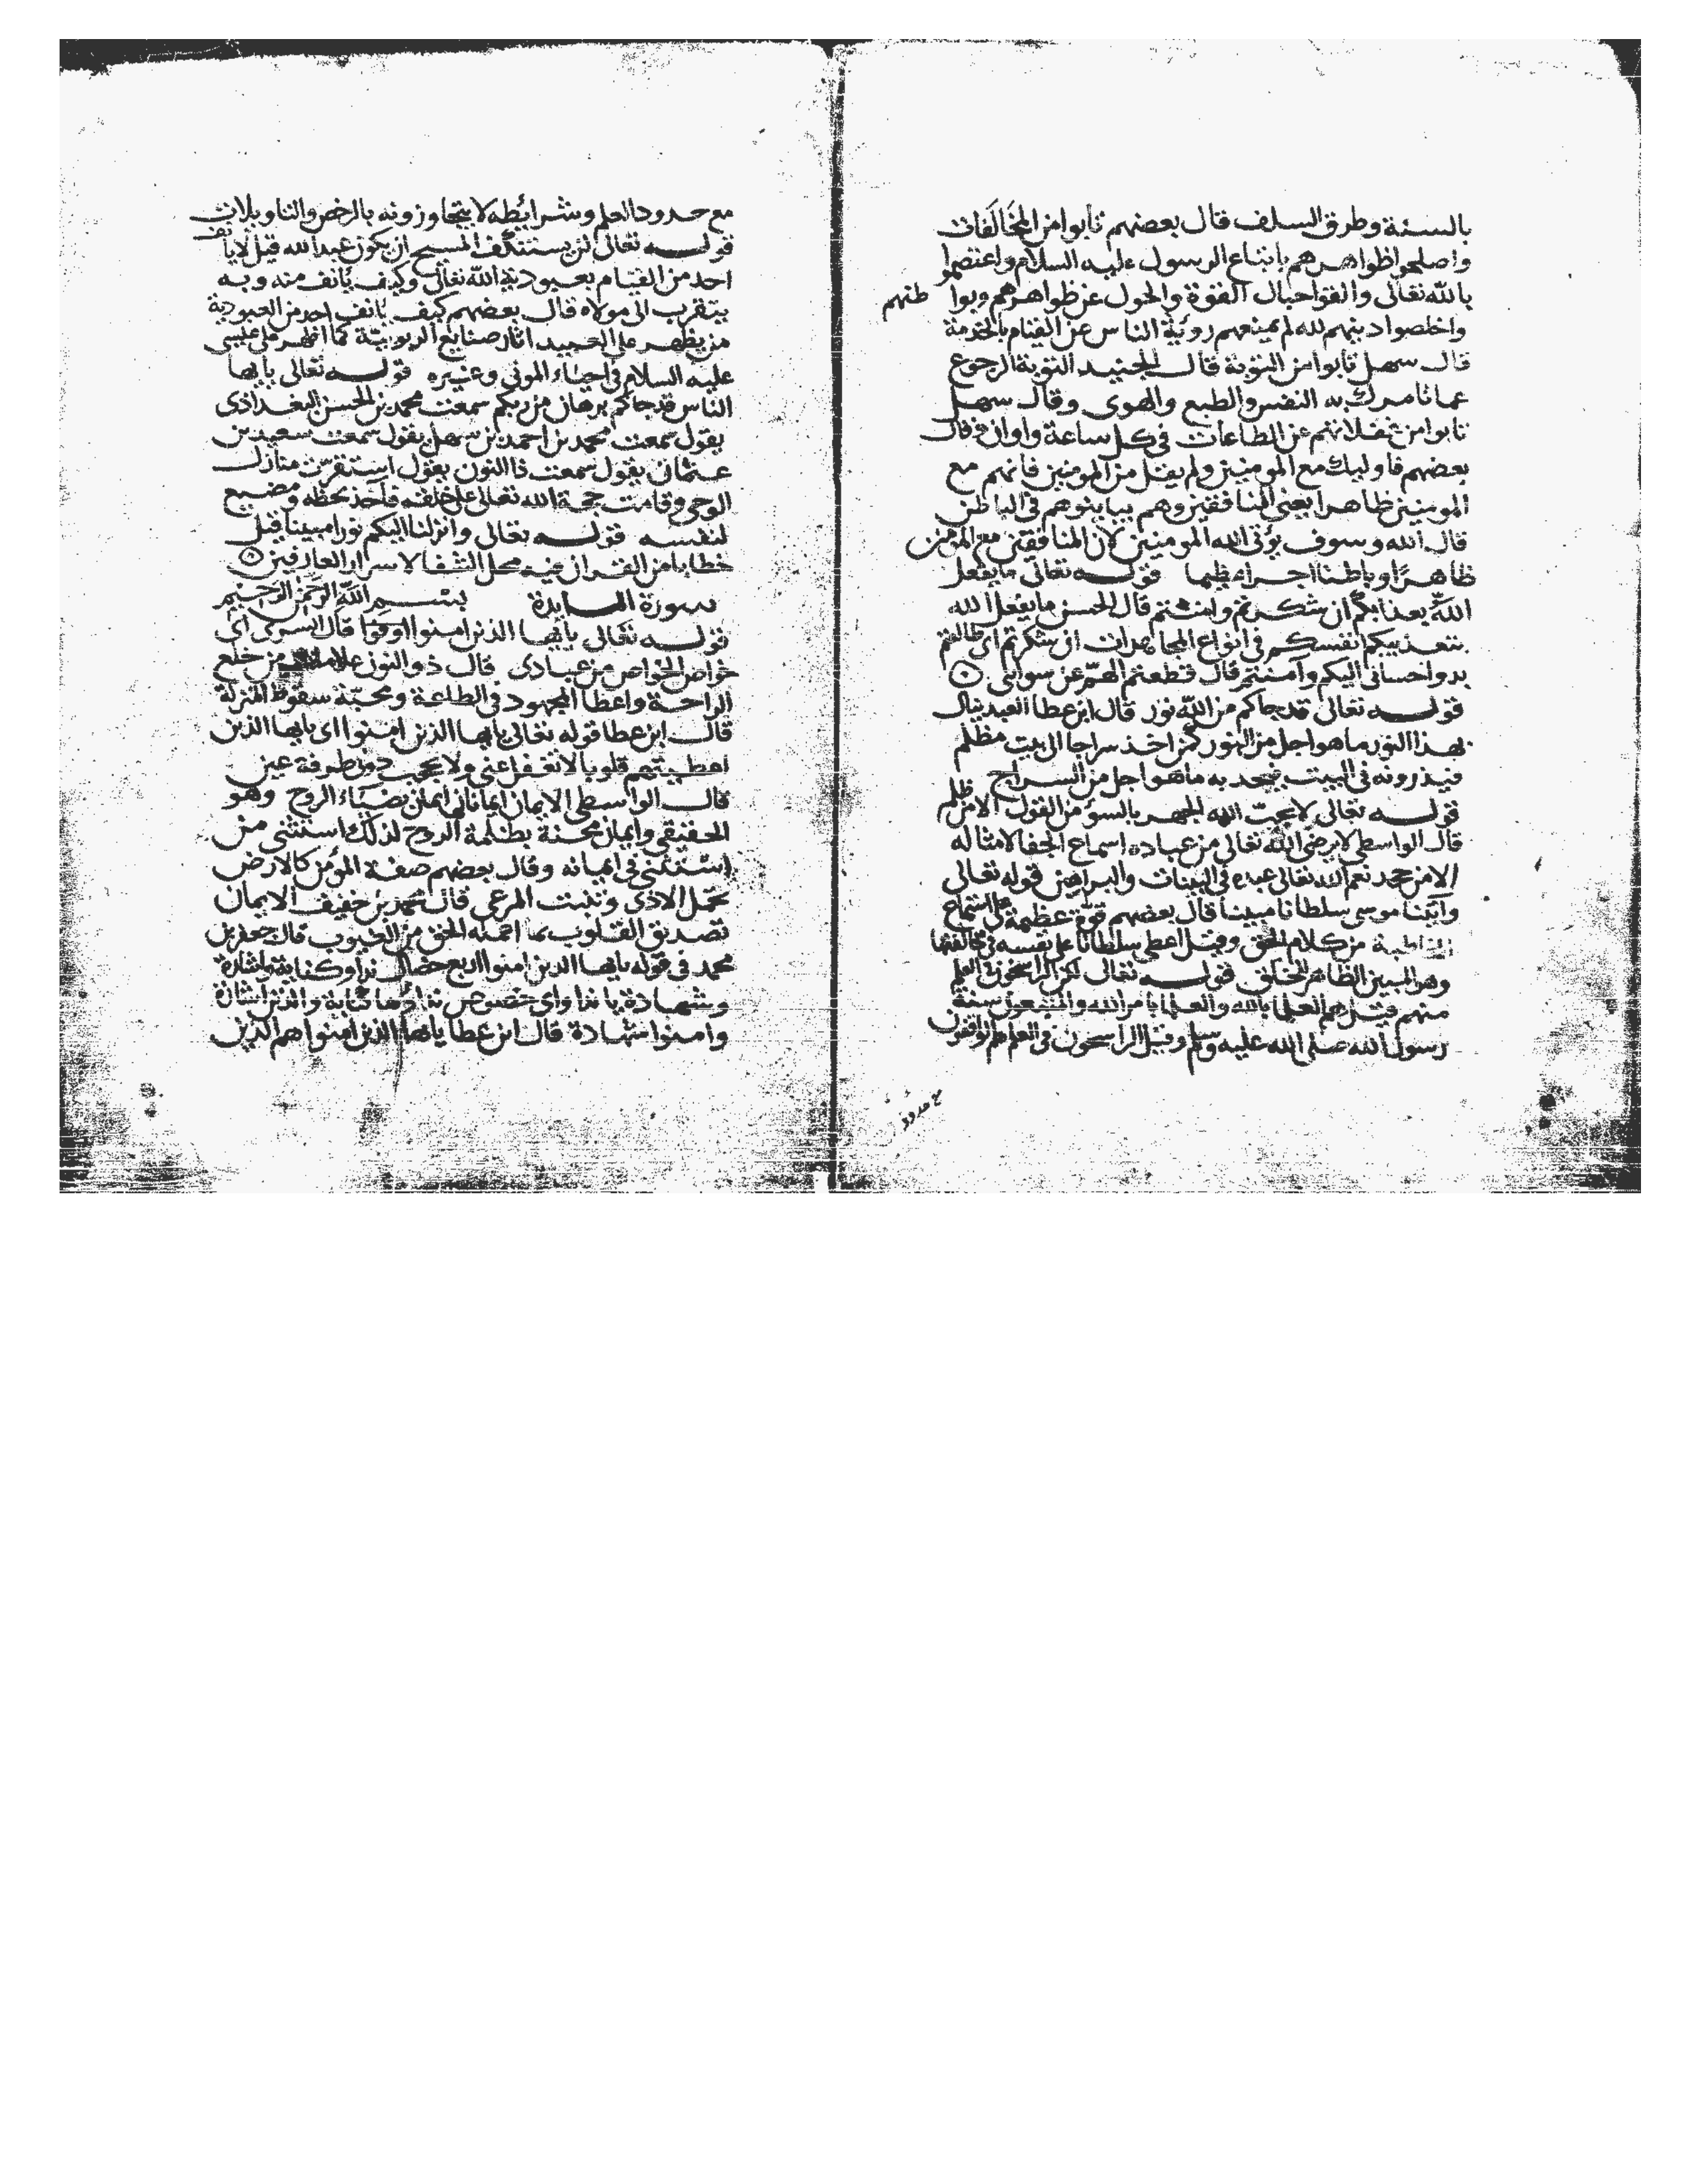 بالسنة وطرق السلف قال بعضهم تابوا من المخالفات
واصلحوا ظواهرهم باتباع الرسول عليه السلام واعتصموا
بالله تعالى والقوا حبال القوة والحول عن ظواهرهم وبوا طنهم
واخلصوا دينهم لله لم يمنعهم روية الناس عن القيام بالخدمة
قال سهل تابوا من التوبة قال الجنيد التوبة الرجوع
عما تامرك به النفس والطبع والهوى وقال سهل
تابوا من غفلاتهم عن الطاعات في كل ساعة واوان وقال
بعضهم فاوليك مع المومنين ولم يقل من المومنين فانهم مع
المومنين ظاهرا يعني المنافقين وهم يباينوهم في الباطن
قال الله وسوف يؤتى الله المومنين لان المنافقين مع المومنين
ظاهرا وباطنا اجرا عظيما قوله تعالى ما يفعل
الله بعذابكم ان شكرتم وامنتم قال الحسن ما يفعل الله
بتعذيبكم انفسكم في انواع المجاهدات ان شكرتم اى طالعتم
بدو احسانى اليكم وآمنتم قال قطعتم الهم عن سوائى
قوله تعالى قد جاكم من الله نور قال ابن عطا العبد ينال
بهذا النور ما هو اجل من النور كمن اخذ سراجا الى بيت مظلم
فيذرونه في البيت فيجد به ما هو اجل من السراج
قوله تعالى لا يحب الله الجهر بالسؤ من القول الا من ظلم
قال الواسطي لا يرضى الله تعالى من عباده اسماع الجفا الامثاله
الا من جحد نعم الله تعالى عنده في البينات والبراهين قوله تعالى
وآتينا موسى سلطانا مبينا قال بعضهم قوة عظيمة على استماع
المخاطبة من كلام الحق وقيل اعطى سلطانا على نفسه في مخالفتها
وهو المبين الظاهر للخلق قوله تعالى لكن الراسخون في العلم
منهم قيل هم العلما بالله والعلما بامر الله والمتبعون سنة
رسول الله صلى الله عليه وسلم وقيل الراسخون في العلم هم الواقفون
مع حدود
مع حدود العلم وشرايطه لا يتجاوزونه بالرخص والتاويلات
قوله تعالى لن يستنكف المسيح ان يكون عبدا لله قيل لا يانف
احد من القيام بعبودية الله تعالى وكيف يانف منه وبه
يتقرب الى مولاه قال بعضهم كيف يانف احد من العبودية
من يظهر على العبيد اثار صنايع الربوبية كما اظهر على عيسى
عليه السلام في احياء الموتى وغيره قوله تعالى يايها
الناس قد جاكم برهان من ربكم سمعت محمد بن الحسن البغدادى
يقول سمعت محمد بن احمد بن سهل يقول سمعت سعيد بن
عثمان يقول سمعت ذا النون يقول استقرت منازل
الوحى وقامت حجة الله تعالى على خلقه فآخذ بحظه ومضيع
لنفسه قوله تعالى وانزلنا اليكم نورا مبينا قيل
خطابا من القران فيه محل الشفا لاسرار العارفين
سورة المايدة بسم الله الرحمن الرحيم
قوله تعالى يايها الذين امنوا اوفوا قال السرى اى
خواص الخواص من عبادى قال ذو النون علامة من خلع
الراحة واعطا المجهود في الطاعة ومحبة سقوط المنزلة
قال ابن عطا قوله تعالى يايها الذين امنوا اى يايها الذين
اعطيتهم قلوبا لا تغفل عنى ولا يحجب دونى طرفة عين
قال الواسطي الايمان ايمانان ايمان بضياء الروح وهو
الحقيقي وايمان محنة بظلمة الروح لذلك استثنى من
استثنى في ايمانه وقال بعضهم صفة المؤمن كالارض
تحمل الاذى وتنبت المرعى قال محمد بن خفيف الايمان
تصديق القلوب بما اعمله الحق من الغيوب قال جعفر بن
محمد في قوله يايها الذين امنوا اربع خصال ندا وكناية واشارة
وشهادة يا ندا واى خصوص نداؤ ها كناية والذين اشارة
وامنوا شهادة قال ابن عطا يايها الذين امنوا هم الذين